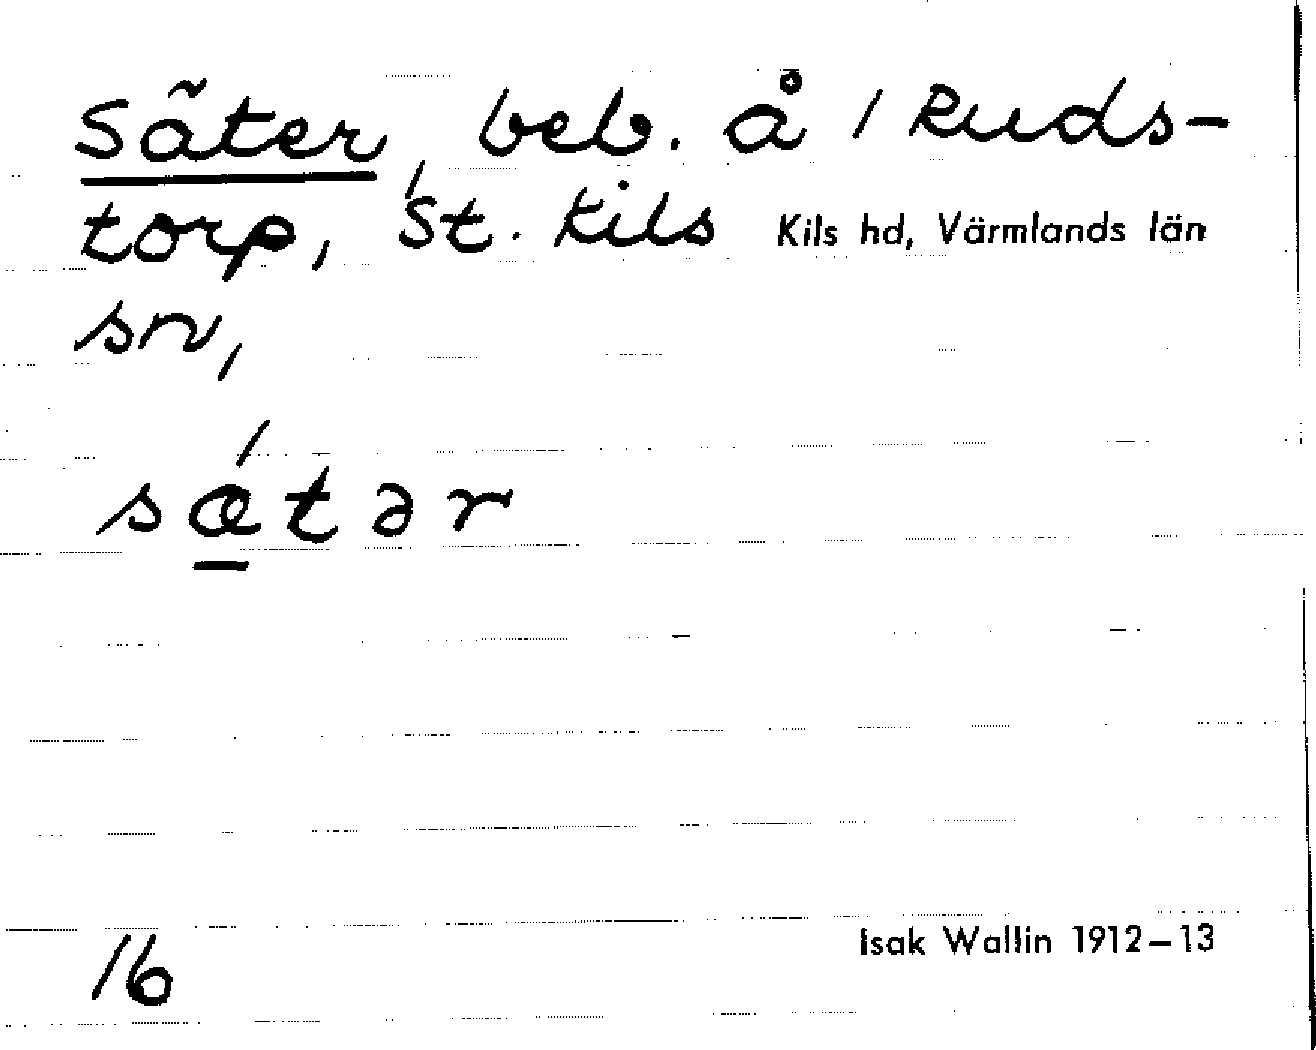 Säter, beb. å / Ruds-
torp, St. Kils Kils hd, Värmlands län
sn,
sǽ̱tər
16
Isak Wallin 1912–13